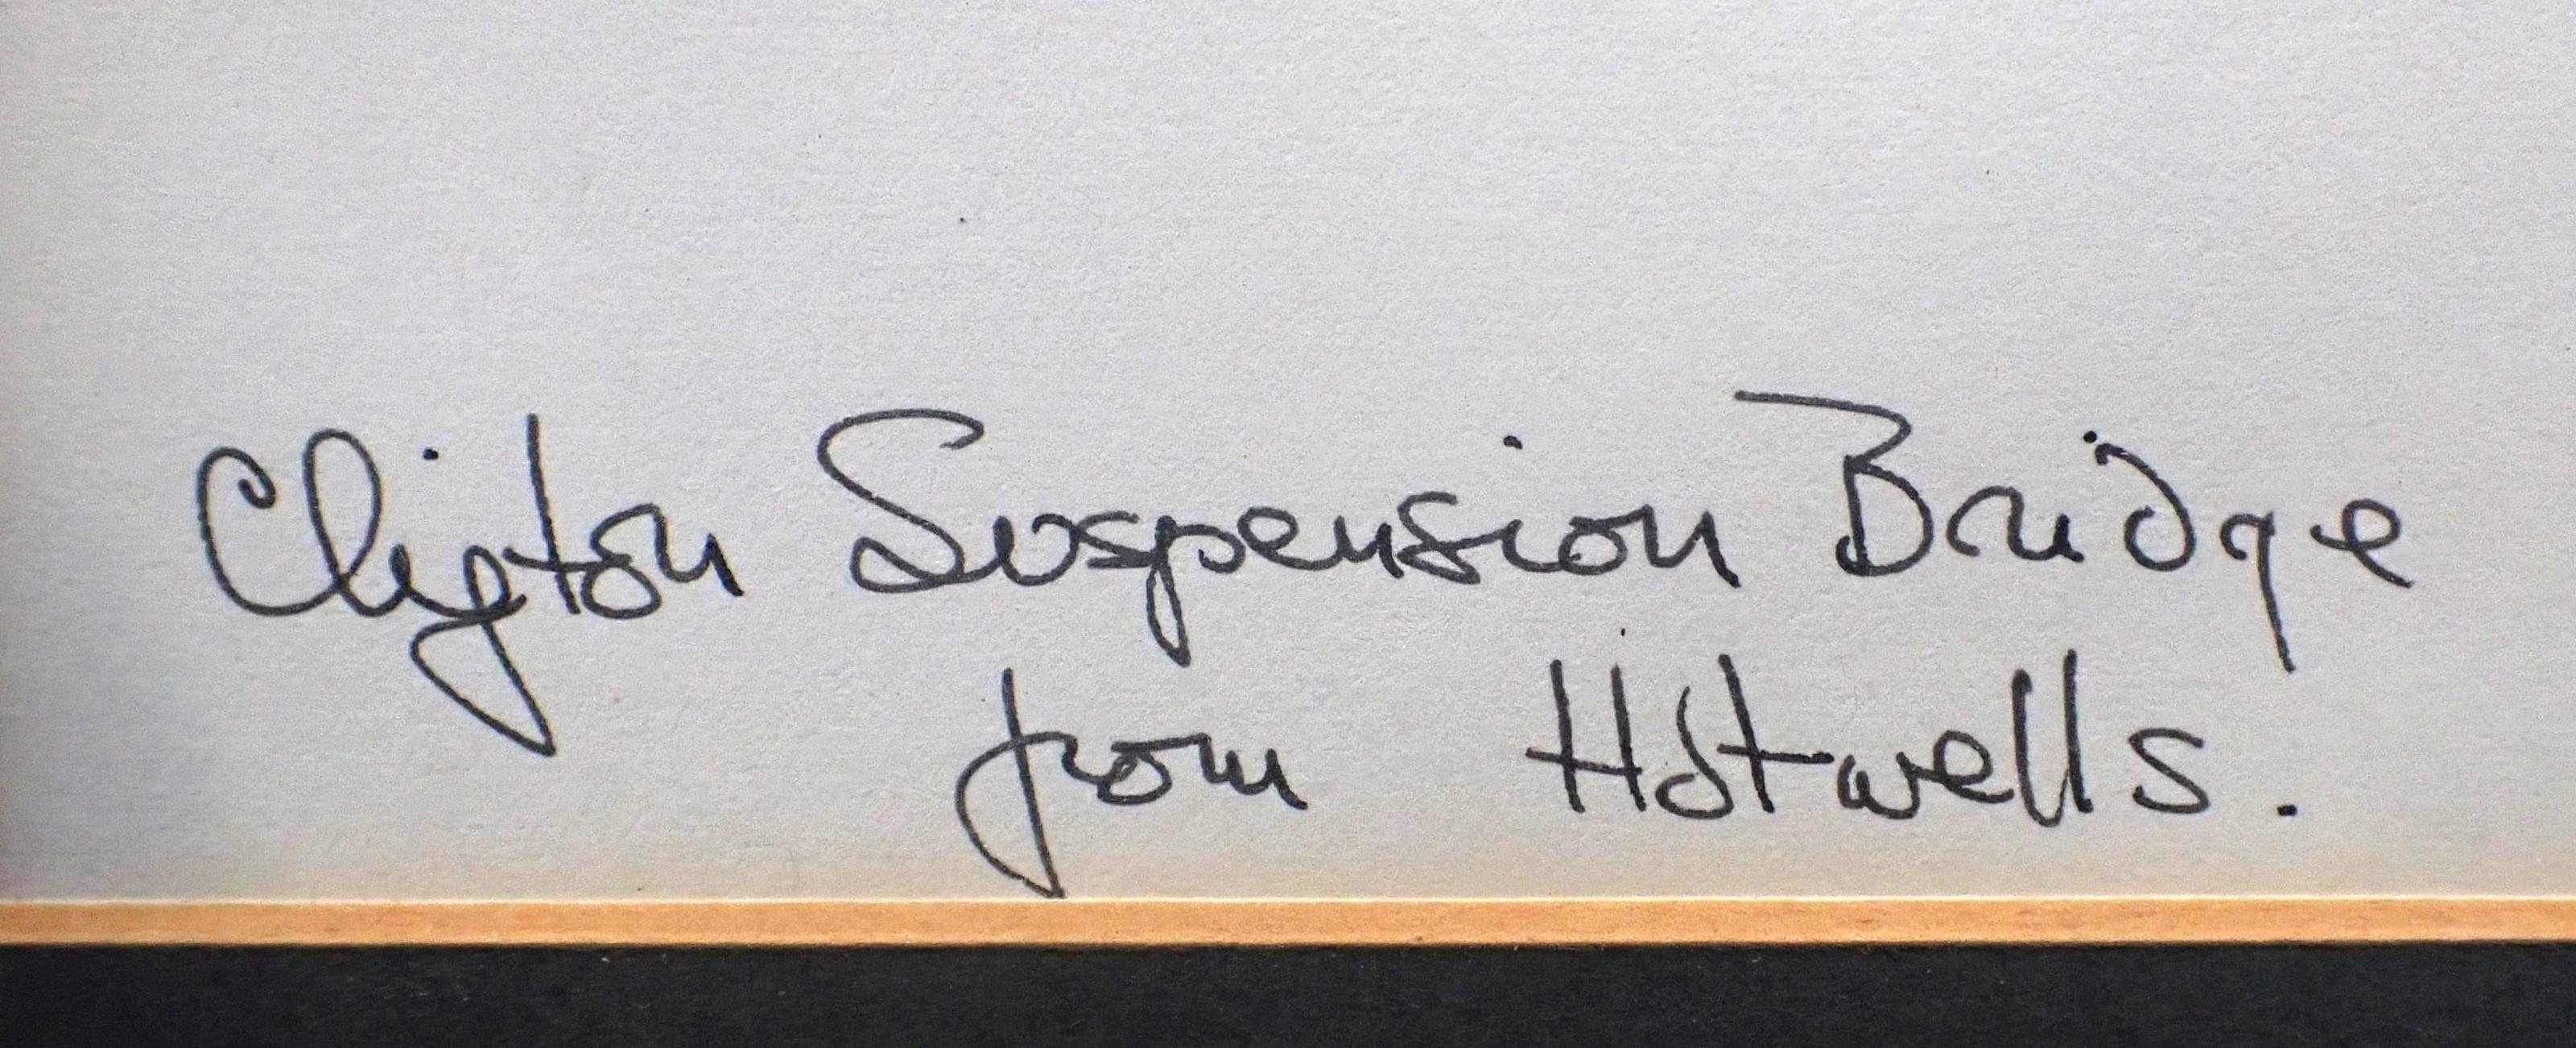 Clifton Suspension Bridge
from Hotwells.